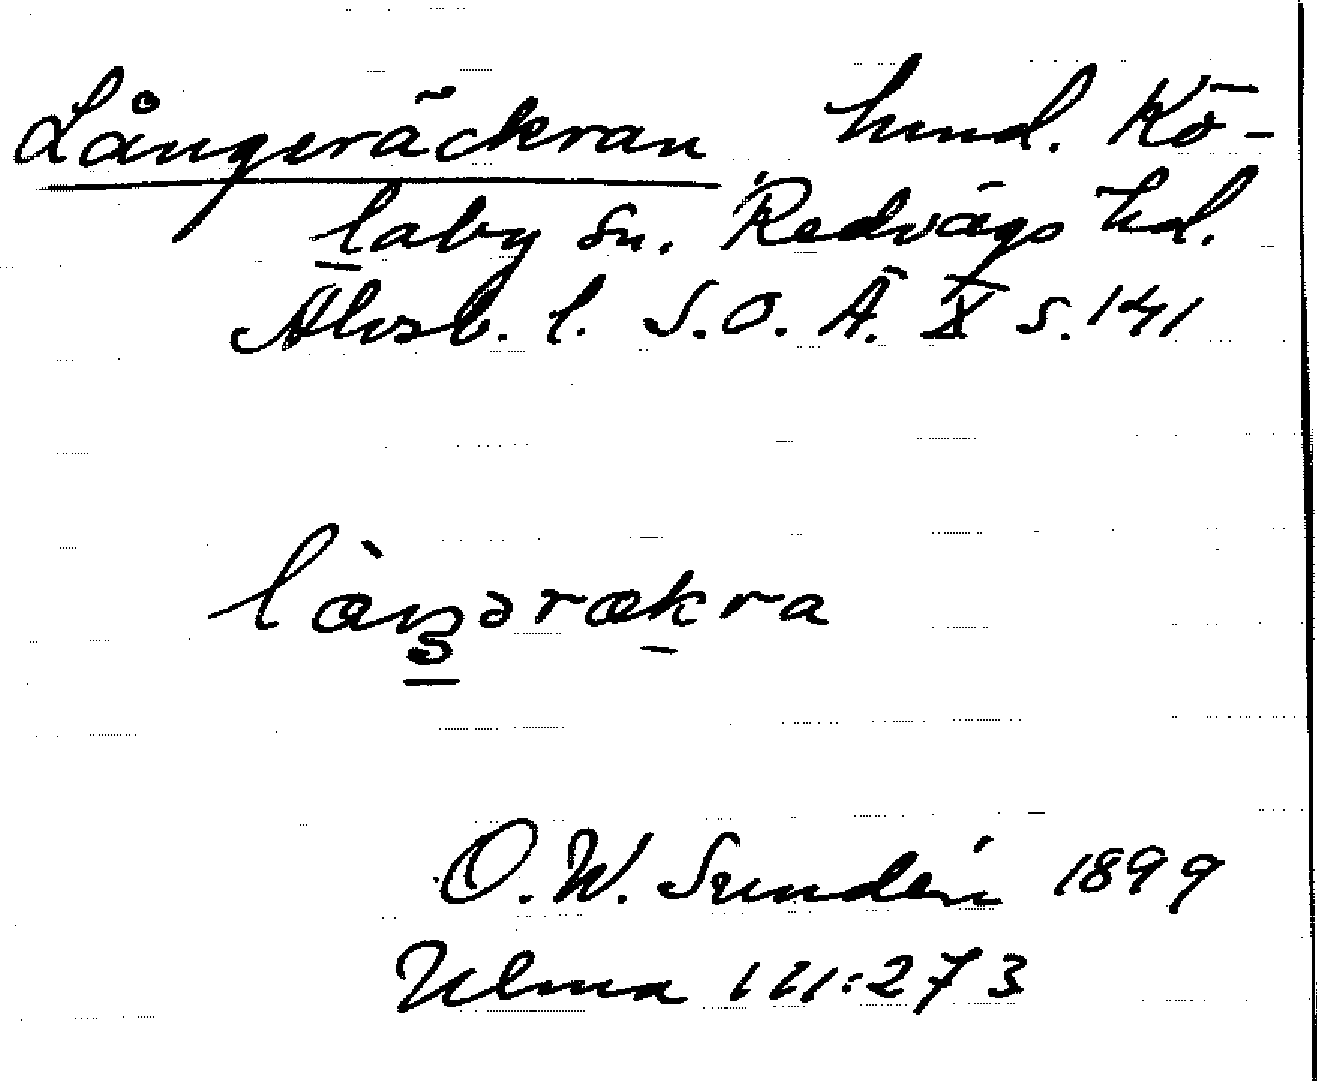 Långeräckran hmd. Kö-
laby sn. Redvägs hd.
Älvsb. l. S.O.Ä. X s. 141
O.W. Sundén 1899
Ulma 111:273